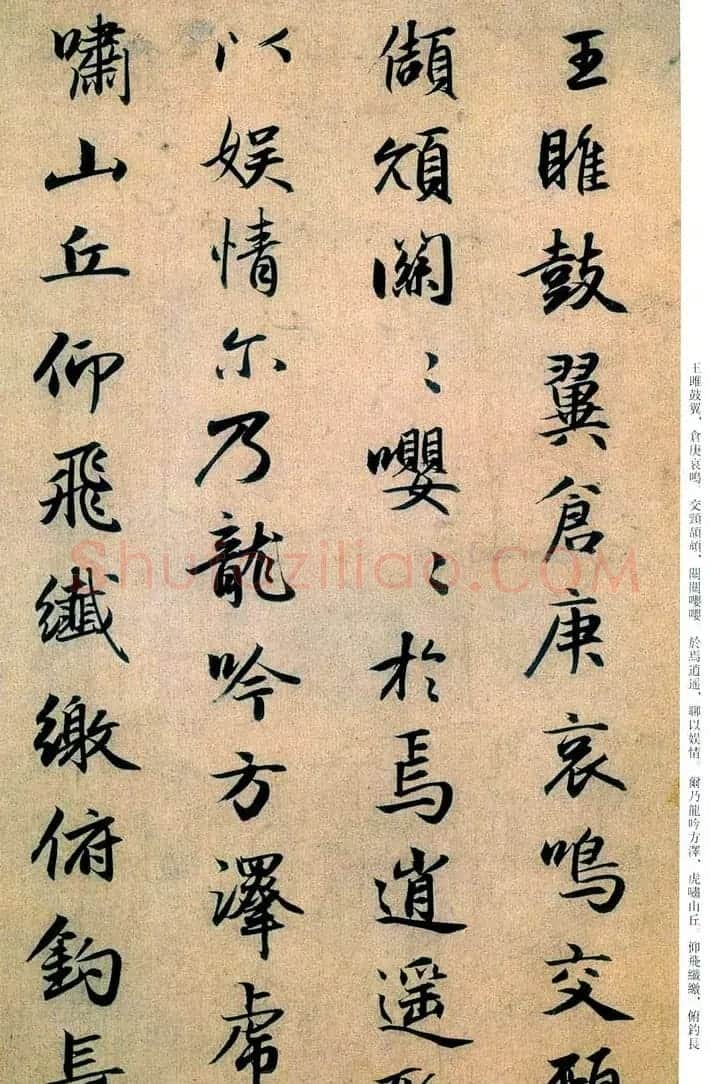 王雎鼓翼倉庚哀鳴交頸
頡頏關〻嚶〻於焉逍遥聊
以娱情尔乃龍吟方澤虎
嘯山丘仰飛纖繳俯釣長
王雎鼓翼、倉庚哀鳴 交頸頡頏、關關嚶嚶 於焉逍遥、聊以娱情。爾乃龍吟方澤、虎嘯山丘。仰飛纖繳、俯釣長
Shufaziliao.COM